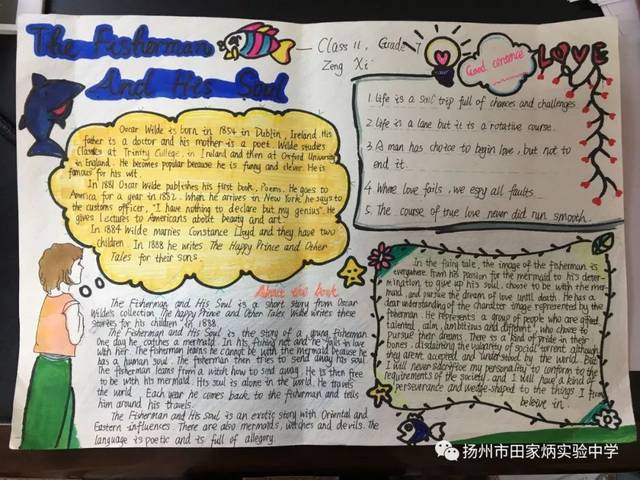 The Fisherman
And His Soul
Class 11, Grade 7
Zeng Xi
Oscar Wilde is born in 1854 in Dublin, Ireland. His
father is a doctor and his mother is a poet. Wilde studies
Classics at Trinity College, in Ireland and then at Oxford University
in England. He becomes popular because he is funny and clever. He is
famous for his wit.
In 1881 Oscar Wilde publishes his first book, Poems. He goes to
America for a year in 1882. When he arrives in New York he says to
the customs officer, "I have nothing to declare but my genius". He
gives lectures to Americans about beauty and art.
In 1884 Wilde marries Constance Lloyd and they have two
children. In 1888 he writes The Happy Prince and Other
Tales for their sons.
Good
LOVE
1. Life is a soul trip full of chances and challenges.
2. Life is a lane but it is a rotative course.
3. A man has choice to begin love, but not to
end it.
4. Where love fails, we espy all faults.
5. The course of true love never did run smooth.
About the book
The Fisherman and His Soul is a short story from Oscar
Wilde's collection The Happy Prince and Other Tales. Wilde writes these
stories for his children in 1888.
The Fisherman and His Soul is the story of a young fisherman.
One day he catches a mermaid in his fishing net and he falls in love
with her. The fisherman learns he cannot be with the mermaid because he
has a human soul. The fisherman then tries to send away his soul.
The fisherman learns from a witch how to send away. He is then free
to be with his mermaid. His soul is alone in the world. He travels
the world. Each year he comes back to the fisherman and tells
him around his travels.
The Fisherman and His soul is an exotic story with Oriental and
Eastern influences. There are also mermaids, witches and devils. The
language is poetic and is full of allegory.
In the fairy tale, the image of the fisherman is
everywhere. From his passion for the mermaid to his deter-
mination to give up his soul, choose to be with the mer-
maid, and pursue the dream of love until death. He has a
clear understanding of the character image represented by the
fisherman. He represents a group of people who are
talented, calm, ambitious and different, who choose to
pursuit their dreams. There is a kind of pride in their
bones, disdaining the volatility of social current, although
they aren't accepted and understood by the world. But
I will never sacrifice my personality to conform to the
requirements of the society, and I will have a kind of
perseverance and wedge-shaped to the things I firm
believe in.
扬州市田家炳实验中学